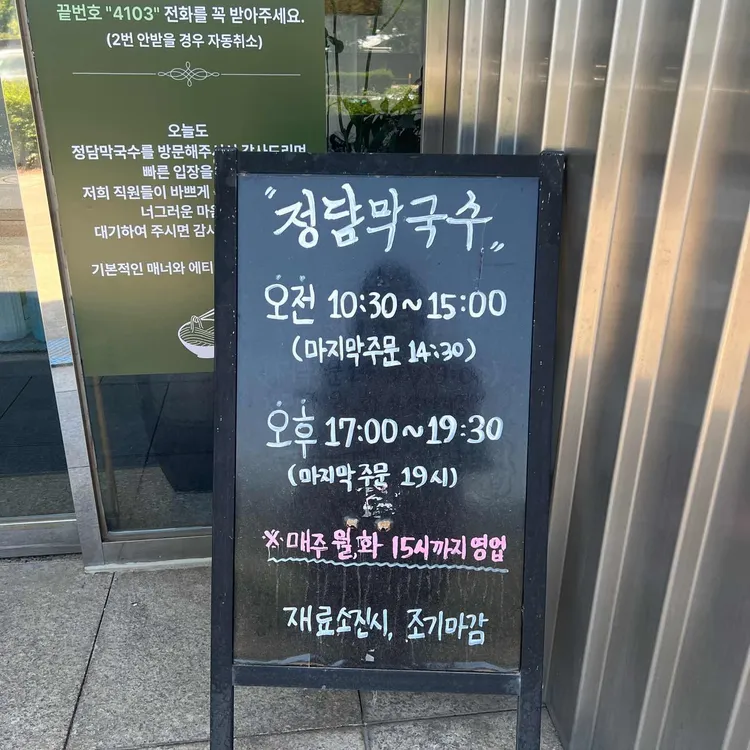 끝번호 "4103" 전화를 꼭 받아주세요.
(2번 안받을 경우 자동취소)
오늘도
정담막국수를 방문해주셔서 감사드리며
빠른 입장을
저희 직원들이 바쁘게
너그러운
대기하여 주시면
기본적인 매너와
"정담막국수"
오전 10:30~15:00
(마지막주문 14:30)
오후 17:00~19:30
(마지막주문 19시)
※매주 월,화 15시까지 영업
재료소진시, 조기마감